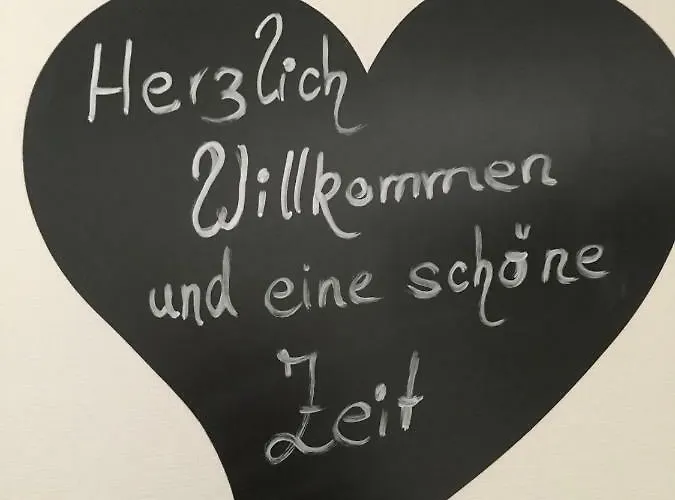 Herzlich
Willkommen
und eine schöne
Zeit